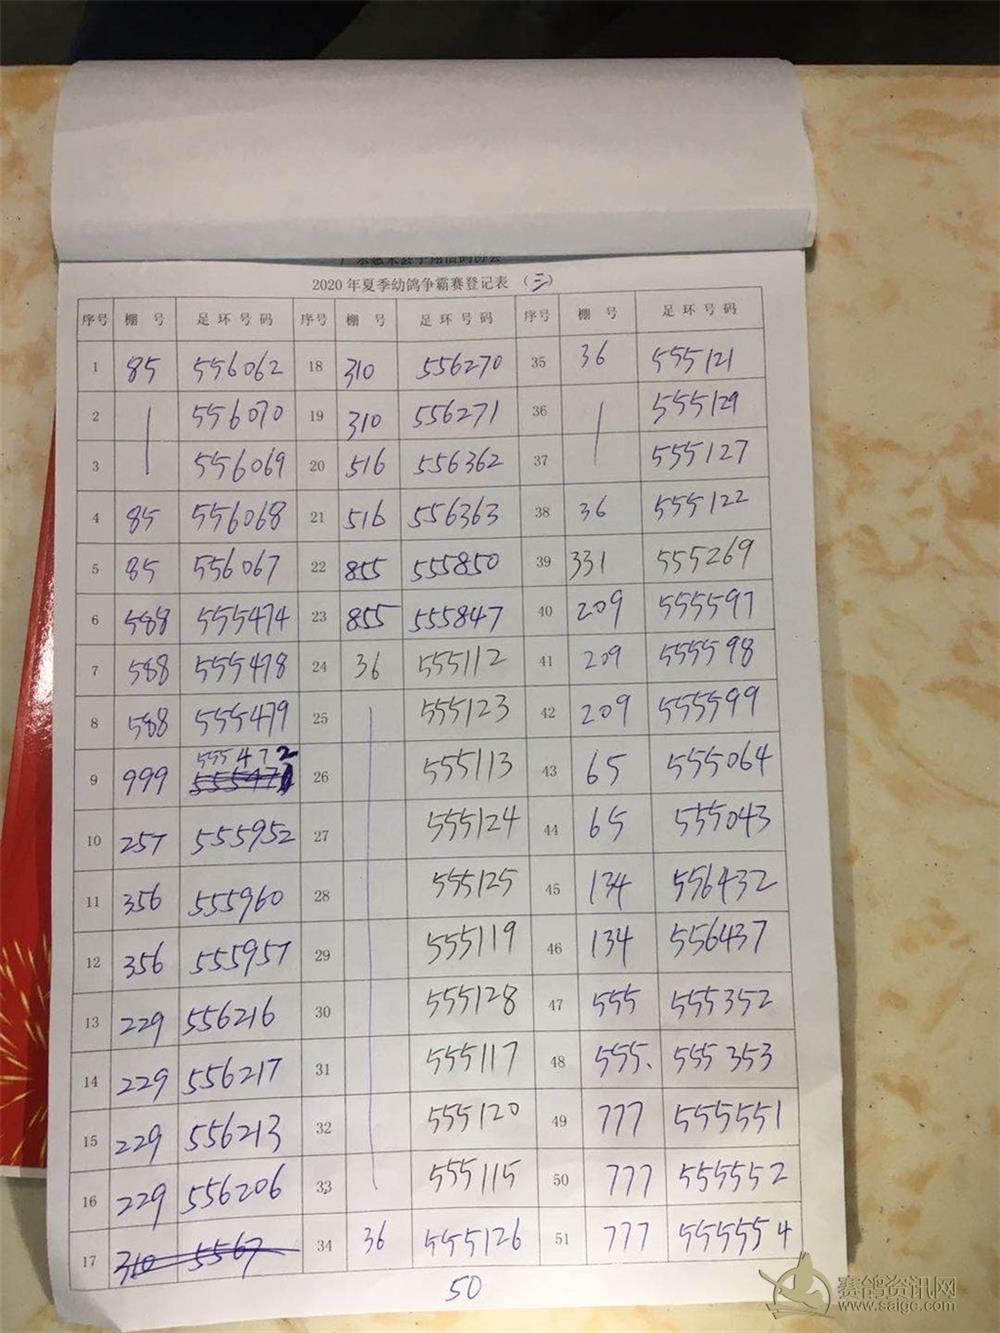 2020年夏季幼鸽争霸赛登记表 (三)
序号 棚号 足环号码 序号 棚号 足环号码 序号 棚号 足环号码
1 85 556062 18 310 556270 35 36 555121
2 | 556070 19 310 556271 36 | 555129
3 556069 20 516 556362 37 555127
4 85 556068 21 516 556363 38 36 555122
5 85 556067 22 855 555850 39 331 555269
6 588 555474 23 855 555847 40 209 555597
7 588 555478 24 36 555112 41 209 555598
8 588 555479 25 555123 42 209 555599
9 999 555472 26 555113 43 65 555064
10 257 555952 27 555124 44 65 555043
11 356 555960 28 555125 45 134 556432
12 356 555957 29 555119 46 134 556437
13 229 556216 30 555128 47 555 555352
14 229 556217 31 555117 48 555. 555353
15 229 556213 32 555120 49 777 555551
16 229 556206 33 555115 50 777 555552
17 310 5567 34 36 555126 51 777 555554
50
赛鸽资讯网
www.saigc.com